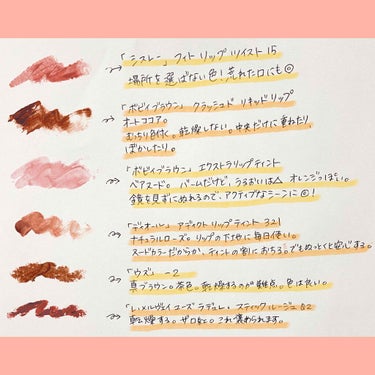 「シスレー」フィト リップ ツイスト 15
場所を選ばない色！荒れた口にも◎
「ボビイブラウン」クラッシュド リキッド リップ
オートココア。
むっちり色付く。乾燥しない。中央だけに重ねたり、
ぼかしたり。
「ボビイブラウン」エクストラリップティント
ベアヌード。バームだけど、うるおいは△ オレンジっぽい。
鏡を見ずにぬれるので、アクティブなシーンに◎！
「ディオール」アディクト リップ ティント 321
ナチュラルローズ。リップの下地に毎日使い。
ヌードカラーだからか、ティントの割におちる。でもぬっとくと安心する。
「ウズ」 -2
真ブラウン。茶色。乾燥するのが難点。色は良い。
「レ・メルヴェイユーズ ラデュレ」スティックルージュ 02
乾燥する。ザクロなど。これ褒められます。